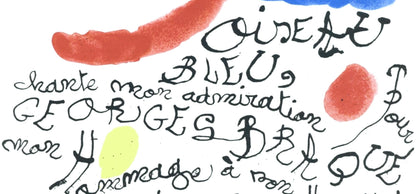 OISEAU
BLEU,
chante mon admiration
pour
GEORGES BRAQUE
mon
Hommage à son